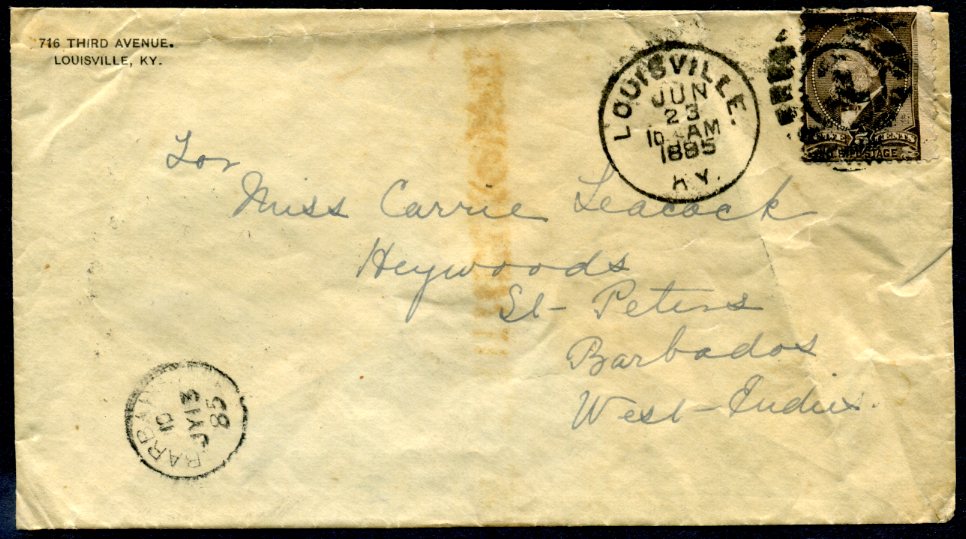 716 THIRD AVENUE.
LOUISVILLE, KY.
LOUISVILLE.
JUN
23
AM
1885
KY.
For
Miss Carrie Leacock
Heywoods
St- Peters
Barbados
West-Indies.
BARBA
D
JY 13
85